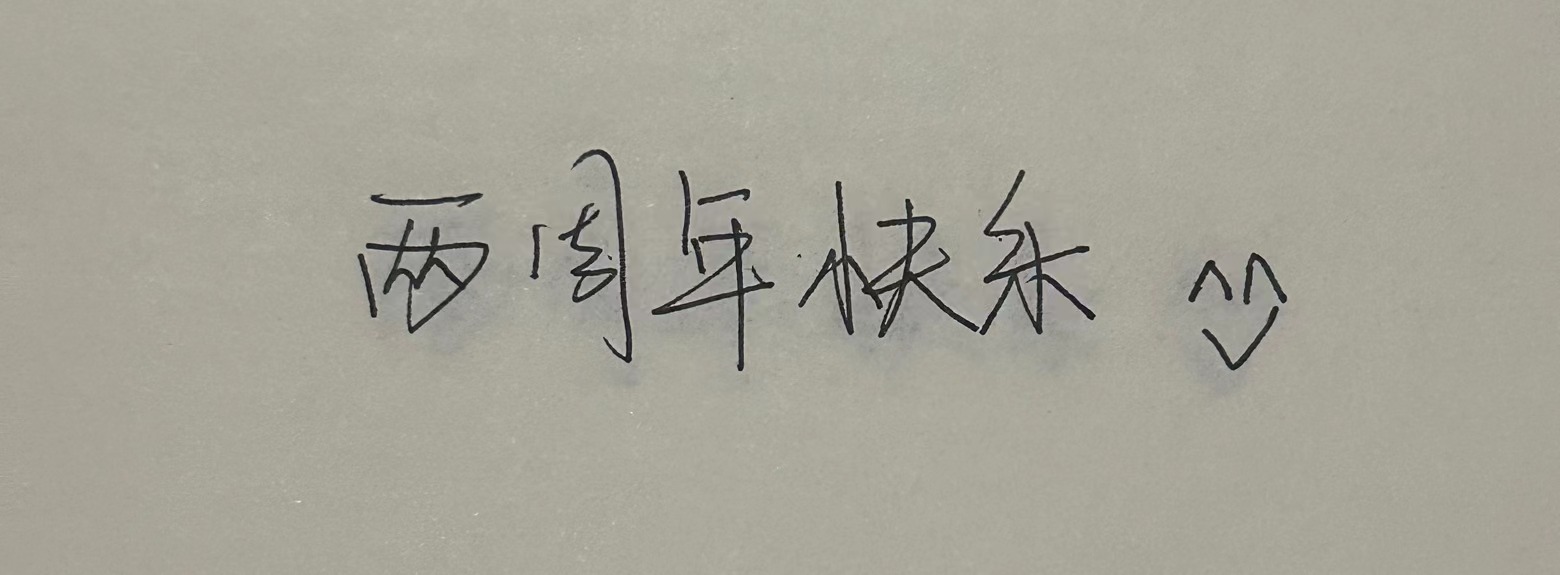 两周年快乐 ^^